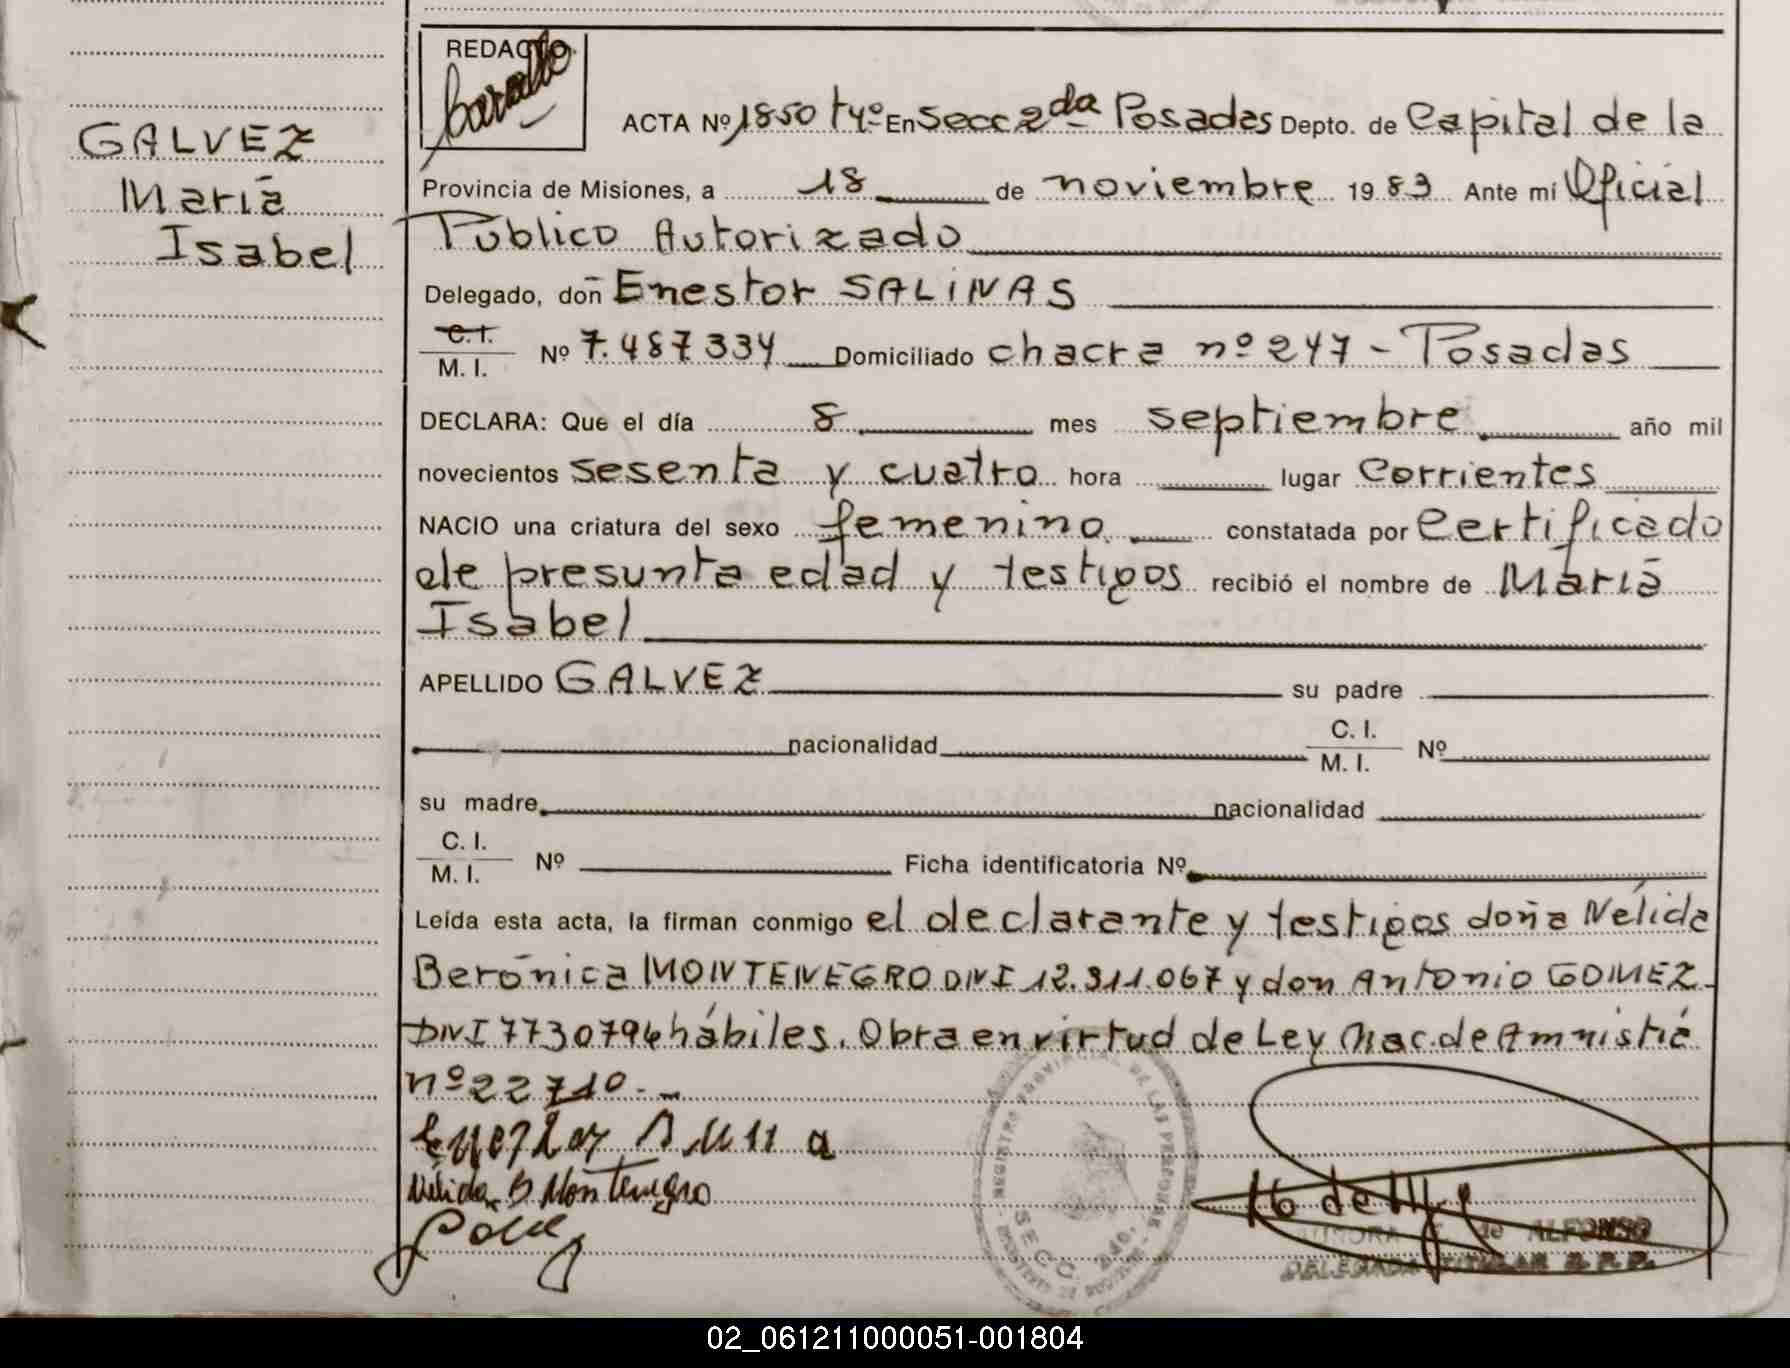 GALVEZ
María
Isabel
REDACTO
ACTA Nº 1850 tyº En Secc 2da Posadas Depto. de Capital de la
Provincia de Misiones, a 18 de noviembre 1983 Ante mí Oficial
Público Autorizado
Delegado, don Enestor SALINAS
C. I.
M. I.
Nº 7.487334 Domiciliado chacra nº 247 - Posadas
DECLARA: Que el día 8 mes septiembre año mil
novecientos sesenta y cuatro hora lugar Corrientes
NACIO una criatura del sexo femenino constatada por Certificado
de presunta edad y testigos recibió el nombre de María
Isabel
APELLIDO GALVEZ su padre
nacionalidad C. I.
M. I. Nº
su madre nacionalidad
C. I.
M. I. Nº Ficha identificatoria Nº
Leída esta acta, la firman conmigo el declarante y testigos doña Nélida
Berónica MONTENEGRO DNI 12.311.067 y don Antonio GOMEZ
DNI 7730794 hábiles. Obra en virtud de Ley Nac. de Amnistía
nº 22710.-
Nélida B Montenegro
de ALFONSO
DELEGADA TITULAR
02_061211000051-001804